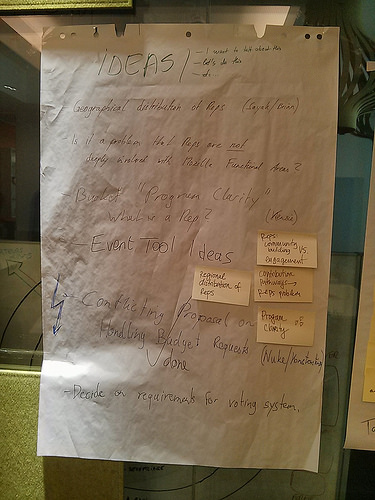 IDEAS
- I want to talk about this
- Let's do this
- Geographical distribution of Reps
- Is it a problem that Reps are not
deeply involved with Mozilla Functional Areas?
- Bucket "Program Clarity"
What is a Rep?
- Event Tool Ideas
Reps
Community
building vs
engagement
Regional
distribution of
Reps
contribution
pathways →
Reps problem
Program
Clarity
- Conflicting Proposal on
Handling Budget Requests
done
- Decide on requirements for voting system.